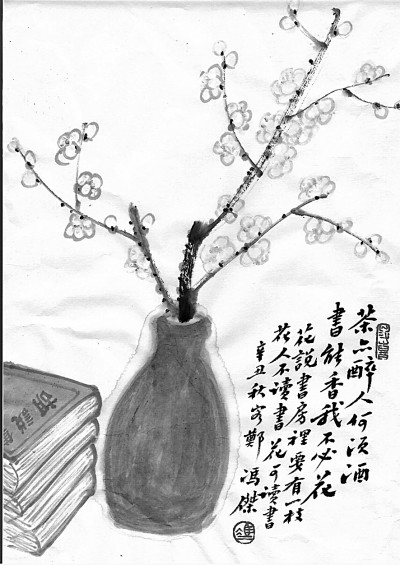 茶亦醉人何須酒
書能香我不必花
花說書房裡要有一枝
花人不讀書花可讀書
辛丑秋客鄭
馮傑
胡說